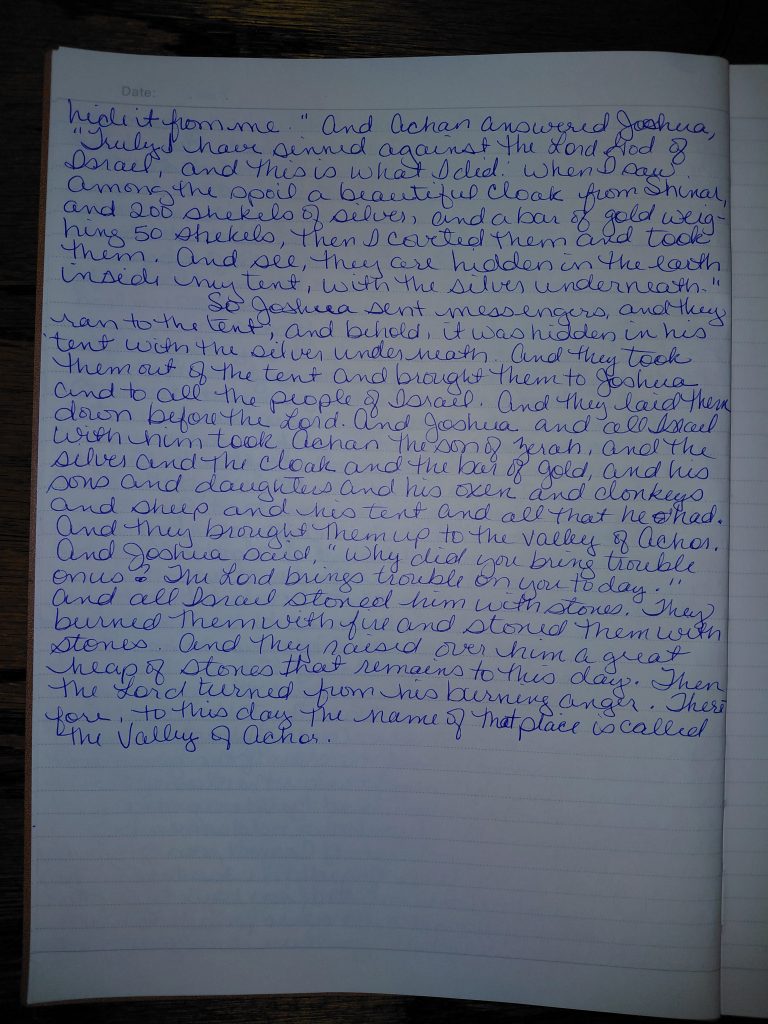 Date:
hide it from me." And Achan answered Joshua,
"Truly I have sinned against the Lord God of
Israel, and this is what I did: when I saw
among the spoil a beautiful cloak from Shinar,
and 200 shekels of silver, and a bar of gold weig-
hing 50 shekels, then I coveted them and took
them. And see, they are hidden in the earth
inside my tent, with the silver underneath."
So Joshua sent messengers, and they
ran to the tent; and behold, it was hidden in his
tent with the silver underneath. And they took
them out of the tent and brought them to Joshua
and to all the people of Israel. And they laid them
down before the Lord. And Joshua and all Israel
with him took Achan the son of Zerah, and the
silver and the cloak and the bar of gold, and his
sons and daughters and his oxen and donkeys
and sheep and his tent and all that he had.
And they brought them up to the Valley of Achor.
And Joshua said, "Why did you bring trouble
on us? The Lord brings trouble on you today."
And all Israel stoned him with stones. They
burned them with fire and stoned them with
stones. And they raised over him a great
heap of stones that remains to this day. Then
the Lord turned from his burning anger. There
fore, to this day the name of that place is called
the Valley of Achor.